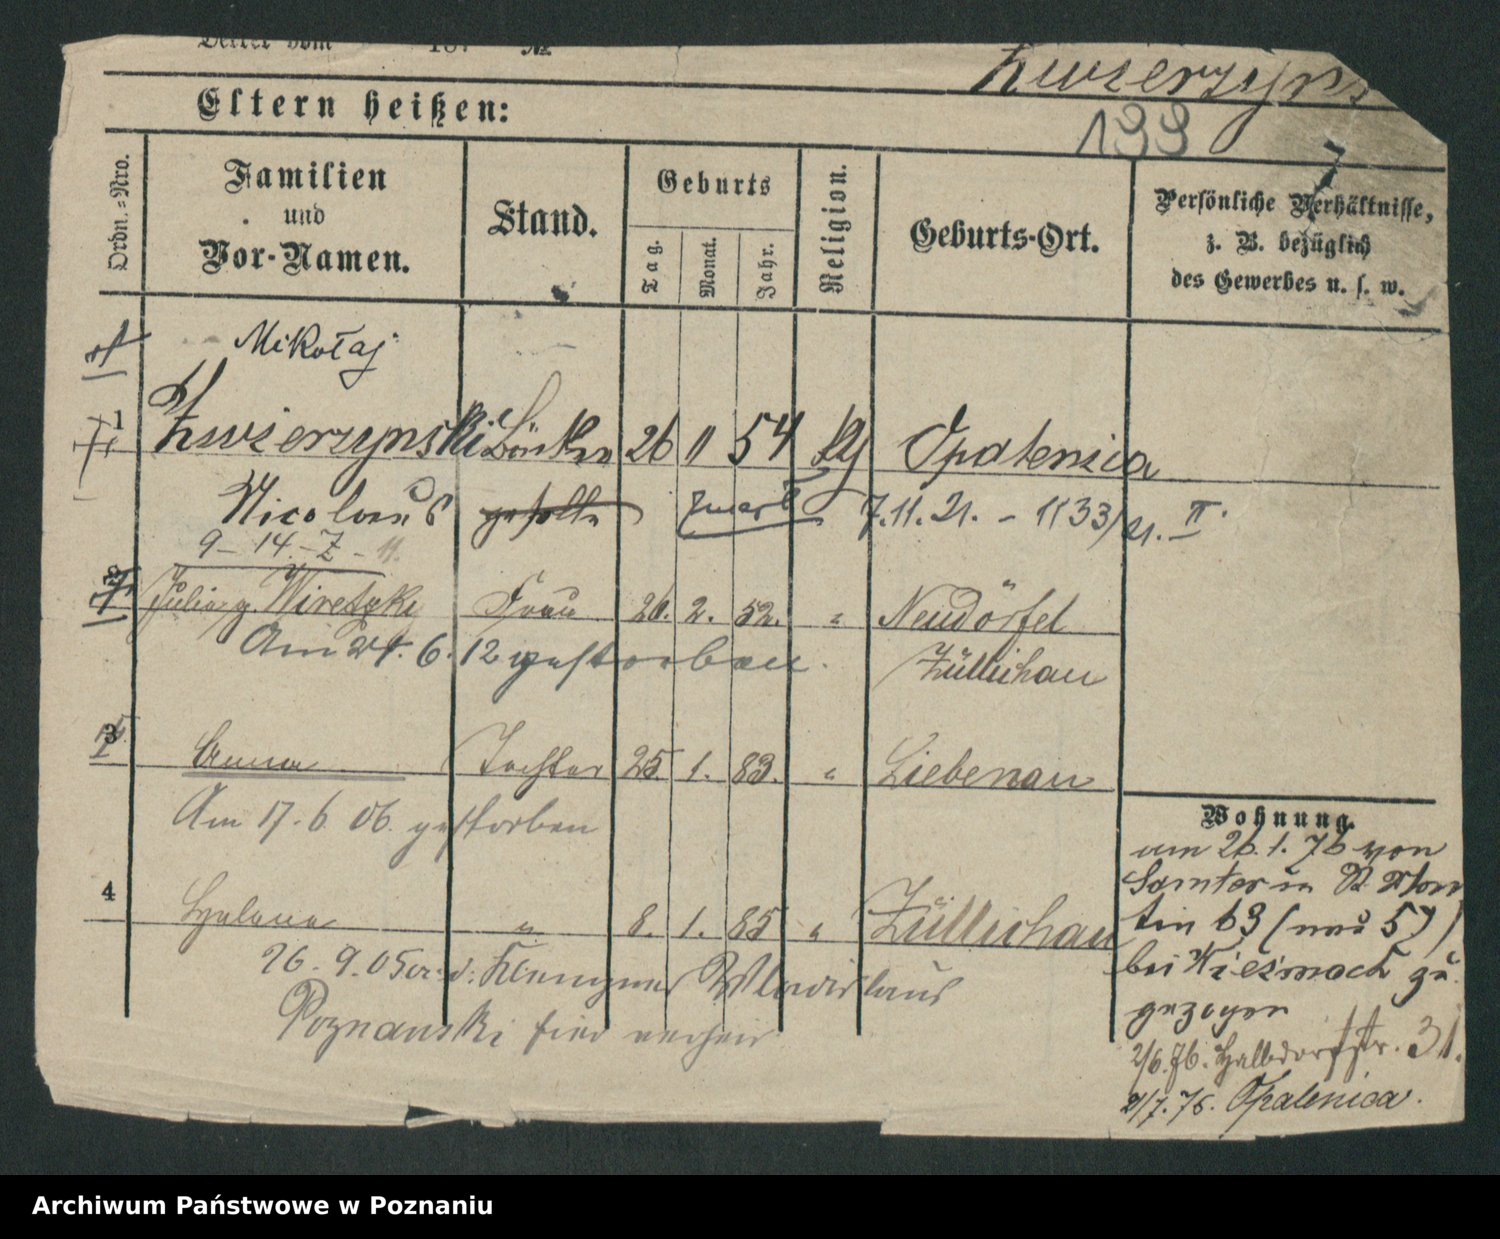 187 №
Zwierzyns
Eltern heißen:
199
Ordn.=Nro.
Familien
und
Vor-Namen.
Stand.
Geburts
Tag.
Monat.
Jahr.
Religion.
Geburts-Ort.
Persönliche Verhältnisse,
z. B. bezüglich
des Gewerbes u. s. w.
Mikołaj
1 Zwierzynski 26 11 54 Opalenica
Nicolaus 7.11.21. - 1133/21. II.
9-14.-Z-
2 Julia g. Wiretzki Frau 26. 2. 52. " Neudörfel
Am 24. 6. 12 gestorben. Züllichau
3 Anna Tochter 25 1. 83. " Liebenau
Am 17. 6. 06. gestorben
4 Helena " 8. 1. 85 " Züllichau
26. 9. 05 Wladislaus
Poznanski hier
Wohnung.
am 26.1.76 von
Samter in St. Mar
tin 63 (neu 57)
bei zu
gezogen
2/6.76. Halbdorfstr. 31.
2/7.76. Opalenica.
Archiwum Państwowe w Poznaniu